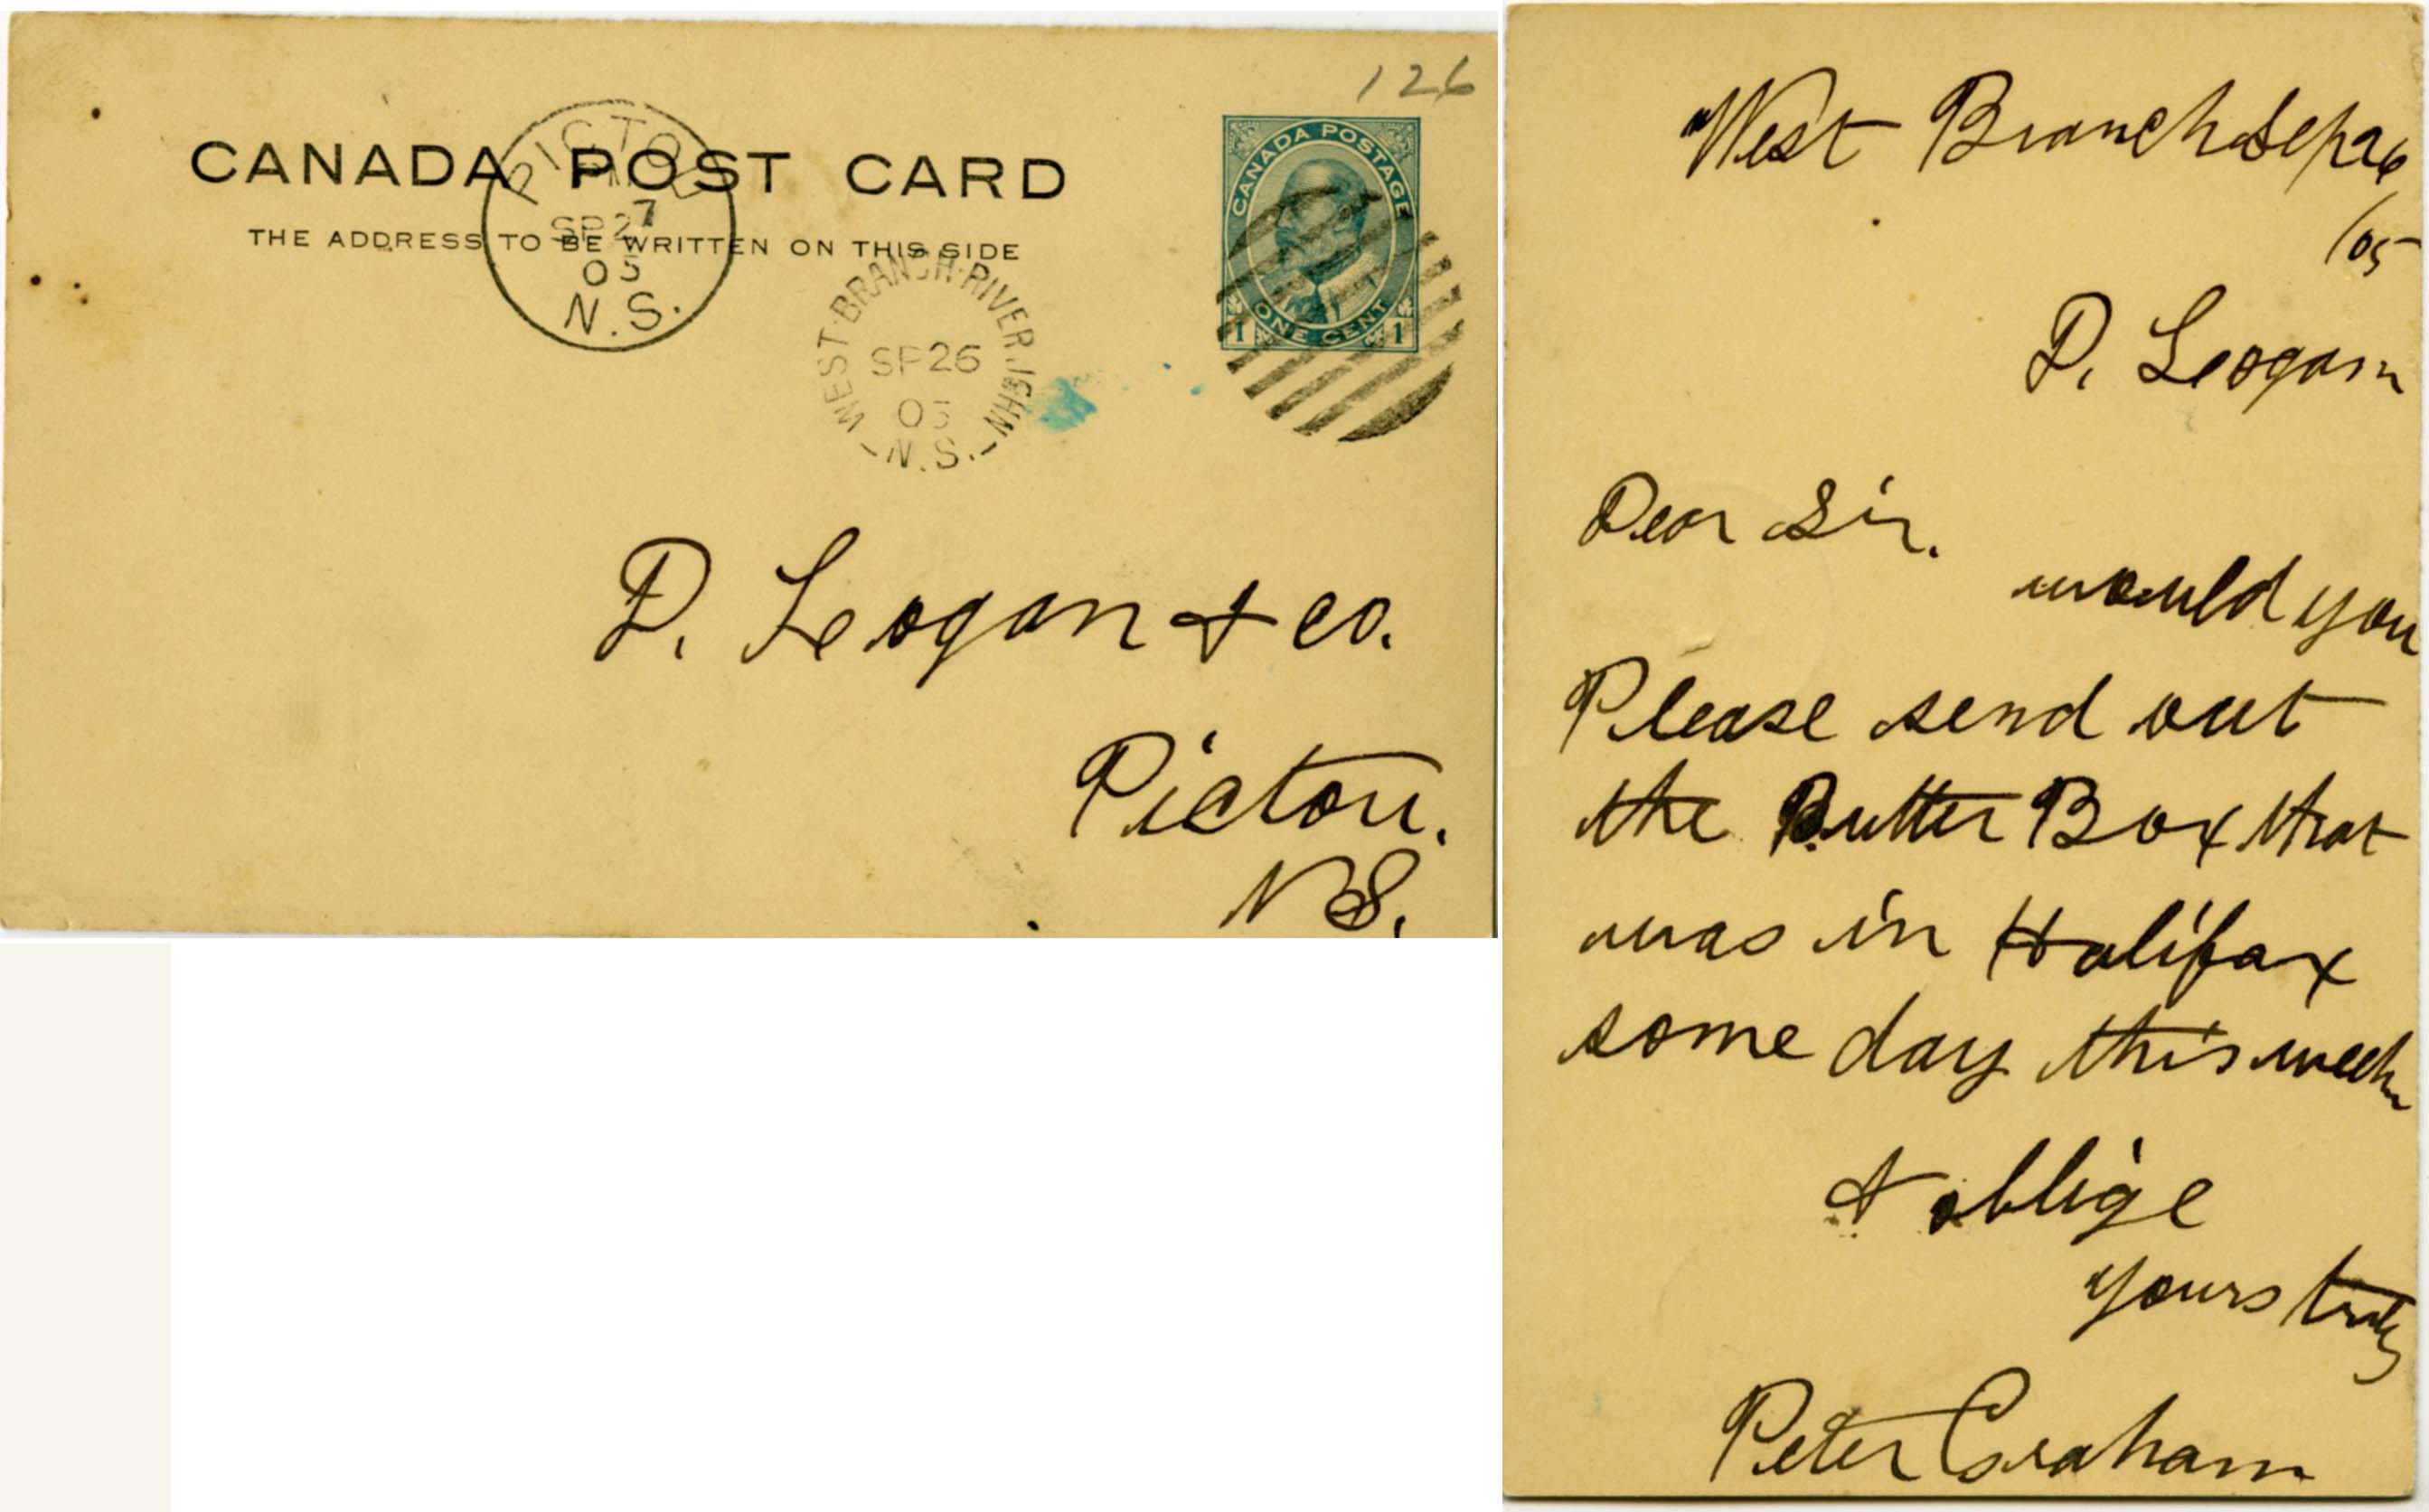 126
CANADA POST CARD
THE ADDRESS TO BE WRITTEN ON THIS SIDE
PICTOU
SP 27
05
N.S.
WEST·BRANCH·RIVER.JOHN
SP 26
05
N.S.
CANADA POSTAGE
ONE CENT
1 1
D. Logan & co.
Pictou.
N S.
West Branch Sep 26
/05
D. Logan
Dear Sir.
would you
Please send out
the Butter Box that
was in Halifax
some day this week
& oblige
yours truly
Peter Graham